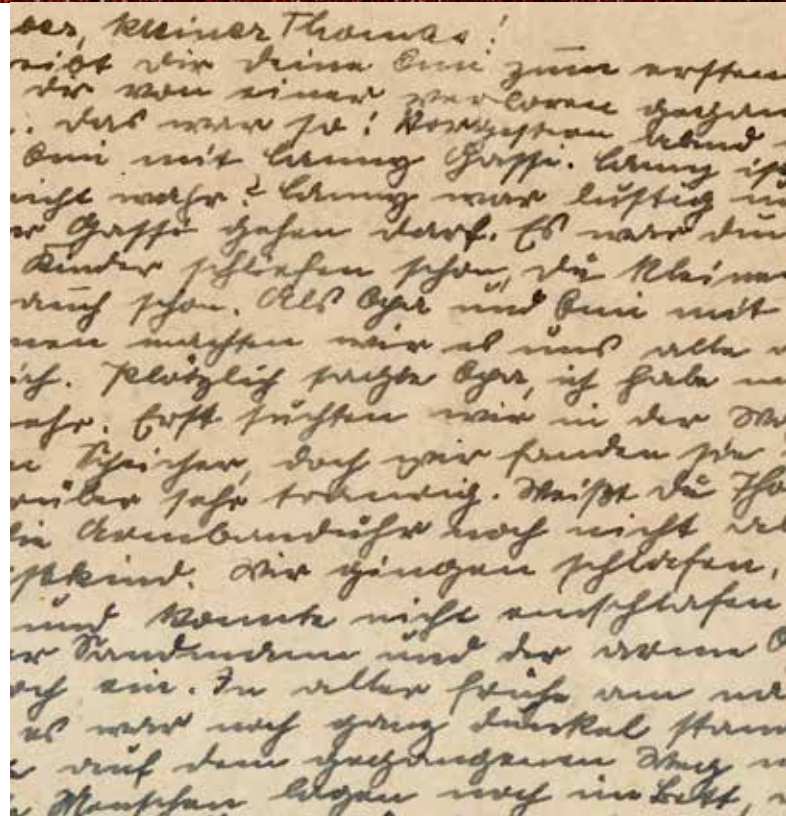 ber, kleiner Thomas!
eibt dir deine Omi zum ersten
dr von einer verloren gegan
. das war so! Vorgestern Abend
Omi mit Lanny Gassi. Lanny ist
nicht wahr? Lanny war lustig u
er Gassi gehen darf. Es war dun
Kinder schliefen schon, du kleiner
auch schon. Als Opa und Omi mit
men machten wir es uns alle
ich. Plötzlich sagte Opa, ich habe m
ehr. Erst suchten wir in der Wo
n Speicher, doch wir fanden sie
rüber sehr traurig. Weißt du Tho
die Armbanduhr noch nicht al
stkind. Wir gingen schlafen,
und konnte nicht einschlafen
er Sandmann und der arme O
och ein. In aller frühe am nä
es war noch ganz dunkel stan
auf dem gegangenen Weg
Menschen lagen noch im Bett,